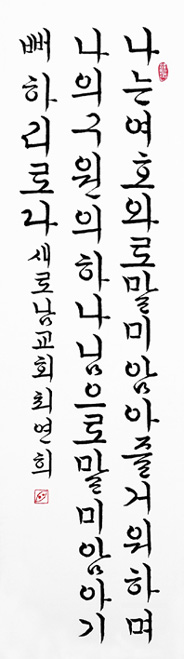 나는여호와로말미암아즐거워하며
나의구원의하나님으로말미암아기
뻐하리로라새로남교회최연희